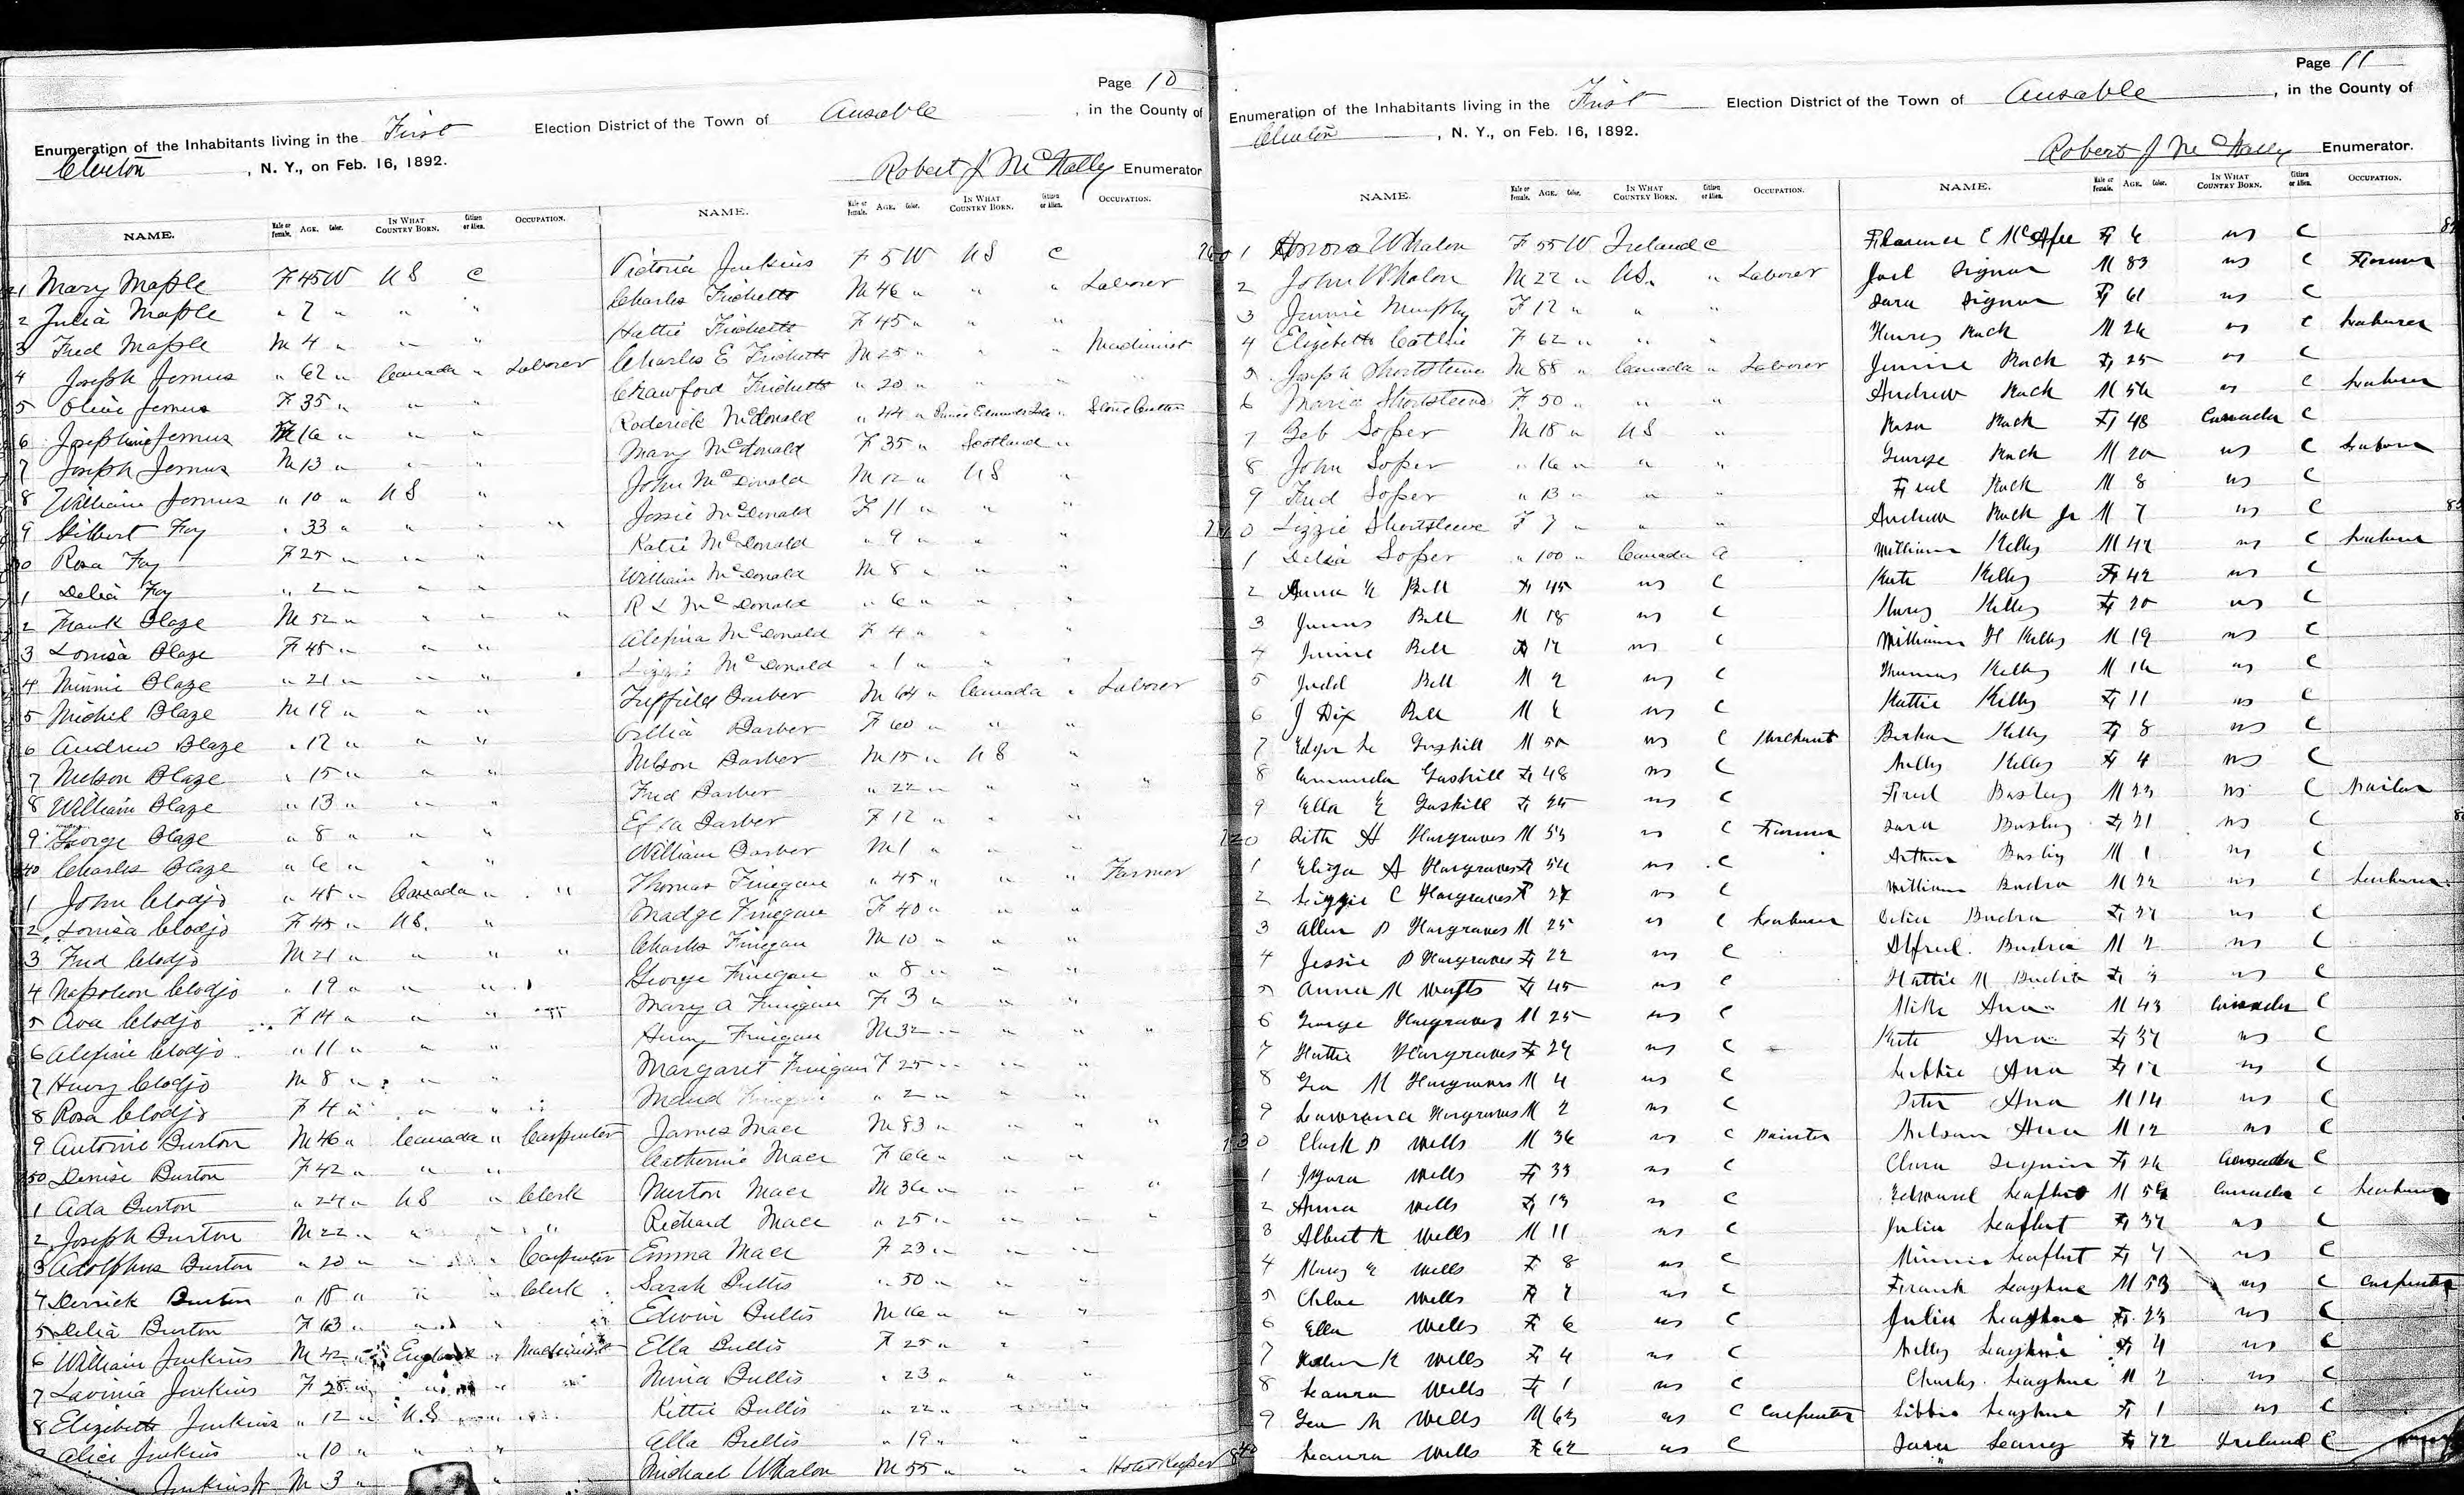 Page 10
Enumeration of the Inhabitants living in the First Election District of the Town of Ausable, in the County of
Clinton, N. Y., on Feb. 16, 1892.
Robert J McNally Enumerator
NAME. Male or Female. AGE. Color. IN WHAT COUNTRY BORN. Citizen or Alien. OCCUPATION.
1 Mary Maple F 45 W US C
2 Julia Maple " 7 " " "
3 Fred Maple M 4 " " "
4 Joseph Jemus " 62 " Canada " Laborer
5 Olive Jemus F 35 " " "
6 Josephine Jemus F 16 " " "
7 Joseph Jemus M 13 " " "
8 William Jemus " 10 " US "
9 Gilbert Foy " 33 " " " "
30 Rosa Foy F 25 " " "
1 Delia Foy " 2 " " "
2 Frank Blaze M 52 " " " "
3 Louisa Blaze F 45 " " "
4 Minnie Blaze " 21 " " "
5 Michel Blaze M 19 " " "
6 Andrew Blaze " 17 " " "
7 Nelson Blaze " 15 " " "
8 William Blaze " 13 " " "
9 George Blaze " 8 " " "
40 Charles Blaze " 6 " " "
1 John Clodjo " 48 " Canada " "
2 Louisa Clodjo F 45 " US. "
3 Fred Clodjo M 21 " " " "
4 Napoleon Clodjo " 19 " " "
5 Ava Clodjo F 14 " " "
6 Alepine Clodjo " 11 " " "
7 Henry Clodjo M 8 " " "
8 Rosa Clodjo F 4 " " "
9 Antoine Burton M 46 " Canada " Carpenter
50 Denise Burton F 42 " " "
1 Ada Burton " 24 " US " Clerk
2 Joseph Burton M 22 " " " "
3 Adolphus Burton " 20 " " " Carpenter
4 Derrick Burton " 18 " " " Clerk
5 Delia Burton F 63 " " "
6 William Jenkins M 42 " England " Machinist
7 Lavinia Jenkins F 28 " " "
8 Elizebeth Jenkins " 12 " U.S "
9 Alice Jenkins " 10 " " "
Jenkins Jr M 3 " "
NAME. Male or Female. AGE. Color. IN WHAT COUNTRY BORN. Citizen or Alien. OCCUPATION.
Victoria Jenkins F 5 W US C
Charles Tricketts M 46 " " " Laborer
Hattie Tricketts F 45 " " "
Charles E Tricketts M 25 " " " Machinist
Crawford Tricketts " 20 " " " "
Roderick McDonald " 44 " Prince Edwards Isle " Stone Cutter
Mary McDonald F 35 " Scotland "
John McDonald M 12 " US "
Jessie McDonald F 11 " " "
Katie McDonald " 9 " " "
William McDonald M 8 " " "
R L McDonald " 6 " " "
Alepina McDonald F 4 " " "
Lizzie McDonald " 1 " " "
Tuffield Barber M 64 " Canada " Laborer
Barber F 60 " " "
Nelson Barber M 15 " US "
Fred Barber " 22 " " " "
Effa Barber F 12 " " "
William Barber M 1 " " "
Thomas Finegan " 45 " " " Farmer
Madge Finegan F 40 " " "
Charles Finegan M 10 " " "
George Finegan " 8 " " "
Mary A Finegan F 3 " " "
Henry Finegan M 32 " " " "
Margaret Finegan F 25 " " "
Maud Finegan " 2 " " "
James Mace M 83 " " " "
Catherine Mace F 66 " " "
Merton Mace M 36 " " " "
Richard Mace " 25 " " " "
Emma Mace F 23 " " "
Sarah Bullis " 50 " " "
Edwin Bullis M 16 " " "
Ella Bullis F 25 " "
Minia Bullis " 23 " " "
Kittie Bullis " 22 " "
Alla Bullis " 19 " " "
Michael Whalon M 55 " " " Hotel Keeper
Page 11
Enumeration of the Inhabitants living in the First Election District of the Town of Ausable, in the County of
Clinton, N. Y., on Feb. 16, 1892.
Robert J McNally Enumerator.
NAME. Male or Female. AGE. Color. IN WHAT COUNTRY BORN. Citizen or Alien. OCCUPATION.
1 Honora Whalon F 55 W Ireland C
2 John Whalon M 22 " US. " Laborer
3 Jennie Murphy F 12 " " "
4 Elizebeth Catlin F 62 " " "
5 Joseph Shortsleeve M 88 " Canada " Laborer
6 Maria Shortsleeve F 50 " " "
7 Zeb Soper M 18 " US "
8 John Soper " 16 " " "
9 Fred Soper " 13 " " "
0 Lizzie Shortsleeve F 7 " " "
1 Delia Soper " 100 " Canada a
2 Anna E Bell F 45 us C
3 James Bell M 18 us C
4 Jennie Bell F 17 us C
5 Judd Bell M 9 us C
6 J Dix Bell M 6 us C
7 Edgar L Gaskill M 50 us C Merchant
8 Amanda Gaskill F 48 us C
9 Ella E Gaskill F 25 us C
720 Seth H Hargraves M 53 us C Farmer
1 Eliza A Hargraves F 54 us C
2 Lizzie C Hargraves F 27 us C
3 Allen D Hargraves M 25 us C Laburer
4 Jessie D Hargraves F 22 us C
5 Anna M F 45 us C
6 George Hargraves M 25 us C
7 Hattie Hargraves F 24 us C
8 Geo M Hargraves M 4 us C
9 Lawrance Hargraves M 2 us C
730 Clark D Wells M 36 us C Painter
1 Wells F 33 us C
2 Anna Wells F 13 us C
3 Albert R Wells M 11 us C
4 Mary E Wells F 8 us C
5 Chloe Wells F 7 us C
6 Ella Wells F 6 us C
7 Helen K Wells F 4 us C
8 Laura Wells F 1 us C
9 Geo W Wells M 63 us C Carpenter
Laura Wells F 62 us C
NAME. Male or Female. AGE. Color. IN WHAT COUNTRY BORN. Citizen or Alien. OCCUPATION.
Florence C McAfee F 6 us C
Joel Signor M 83 us C Farmer
Sara Signor F 61 us C
Henry Rock M 26 us C Laburer
Jennie Rock F 25 us C
Andrew Rock M 56 us C Laburer
Rosa Rock F 48 Canada C
George Rock M 20 us C Laburer
Fred Rock M 8 us C
Andrew Rock Jr M 7 us C
William Kelley M 47 us C Laburer
Kate Kelley F 42 us C
Mary Kelley F 20 us C
William H Kelley M 19 us C
Thomas Kelley M 16 us C
Kattie Kelley F 11 us C
Kelley F 8 us C
Nelley Kelley F 4 us C
Fred Bushey M 23 us C
Sara Bushey F 21 us C
Arthur Bushey M 1 us C
William Budra M 22 us C Laburer
Delia Budra F 27 us C
Alfred Budra M 2 us C
Hattie M Budra F 3 us C
Mike Ana M 43 Canada C
Kate Ana F 37 us C
Libbie Ana F 17 us C
Peter Ana M 14 us C
Nelson Ana M 12 us C
Clara F 26 Canada C
Edward Laflut M 54 Canada C Laburer
Julia Laflut F 37 us C
Minnie Laflut F 4 us C
Frank M 53 us C Carpenter
Julia F 23 us C
Nelley F 4 us C
Charles M 2 us C
Libbie F 1 us C
Sara Learey F 72 Ireland C